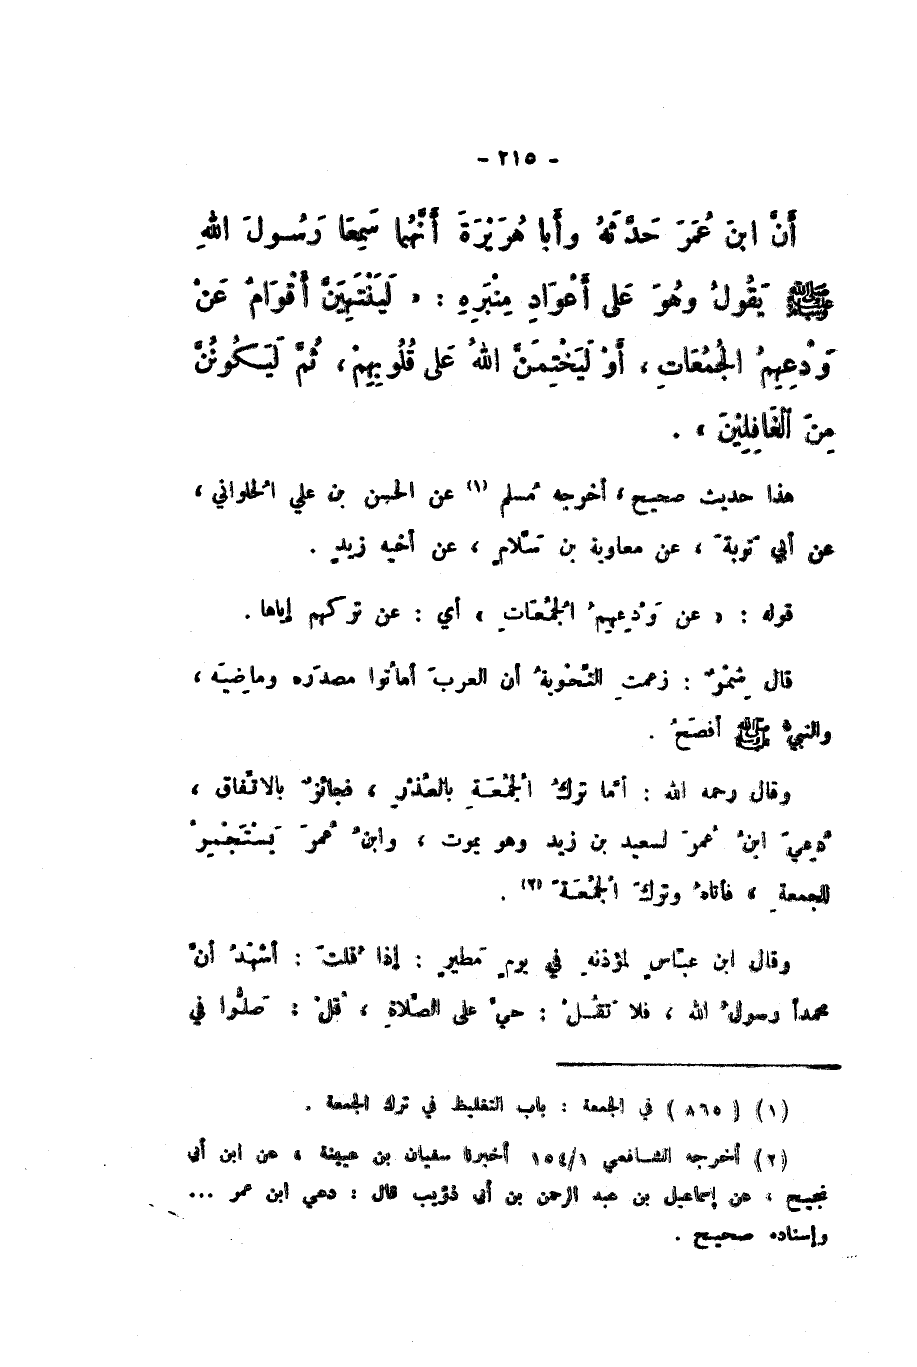 - ٢١٥ -
أَنَّ ابنَ عُمَرَ حَدَّثَهُ وأَبا هُرَيْرَةَ أَنَّهُما سَمِعَا رَسُولَ اللهِ
ﷺ يَقُولُ وهُوَ عَلى أَعْوَادِ مِنْبَرِهِ : « لَيَنْتَهِيَنَّ أَقْوَامٌ عَنْ
وَدْعِهِمُ الْجُمُعَاتِ ، أَوْ لَيَخْتِمَنَّ اللهُ عَلى قُلُوبِهِمْ ، ثُمَّ لَيَكُونُنَّ
مِنَ الْغَافِلِيْنَ » .
هذا حديث صحيح ، أخرجه مُسلم (١) عن الحسن بن علي الْحلواني ،
عن أبي تَوبةَ ، عن معاوية بن سَلّامٍ ، عن أخيه زيدٍ .
قوله : « عن وَدْعِهِمُ الْجُمُعَاتِ » أي : عن تركهم إياها .
قال شِمْرٌ : زعمتِ النَّحْوِيةُ أن العربَ أماتُوا مصدَره وماضِيَه ،
والنبيُّ ﷺ أفصَحُ .
وقال رحمه الله : أمّا تركُ الْجُمُعَةِ بالعُذْرِ ، فجائزٌ بالاتّفاق ،
دُعِيَ ابنُ عُمرَ لسعيد بن زيد وهو يموت ، وابنُ عُمرَ يَسْتَجْمِرُ
للجمعةِ ، فأتاهُ وتركَ الْجُمُعَةَ (٢) .
وقال ابن عبّاسٍ لمؤذنهِ في يومٍ مَطيرٍ : إذا قُلتَ : أَشْهَدُ أنَّ
محمداً رسولُ الله ، فلا تَقُلْ : حيَّ على الصّلاةِ ، قُلْ : صَلُّوا في
(١) ( ٨٦٥ ) في الجمعة : باب التغليظ في ترك الجمعة .
(٢) أخرجه الشافعي ١٥٤/١ أخبرنا سفيان بن عيينة ، عن ابن أبي
نجيح ، عن إسماعيل بن عبد الرحمن بن أبي ذؤيب قال : دعي ابن عمر ...
وإسناده صحيح .